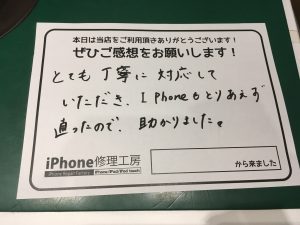 本日は当店をご利用頂きありがとうございます!
ぜひご感想をお願いします!
とても丁寧に対応して
いただき、I Phoneもとりあえず
直ったので、助かりました。
iPhone修理工房
iPhone Repair Factory
iPhone/iPad/iPod touch
から来ました